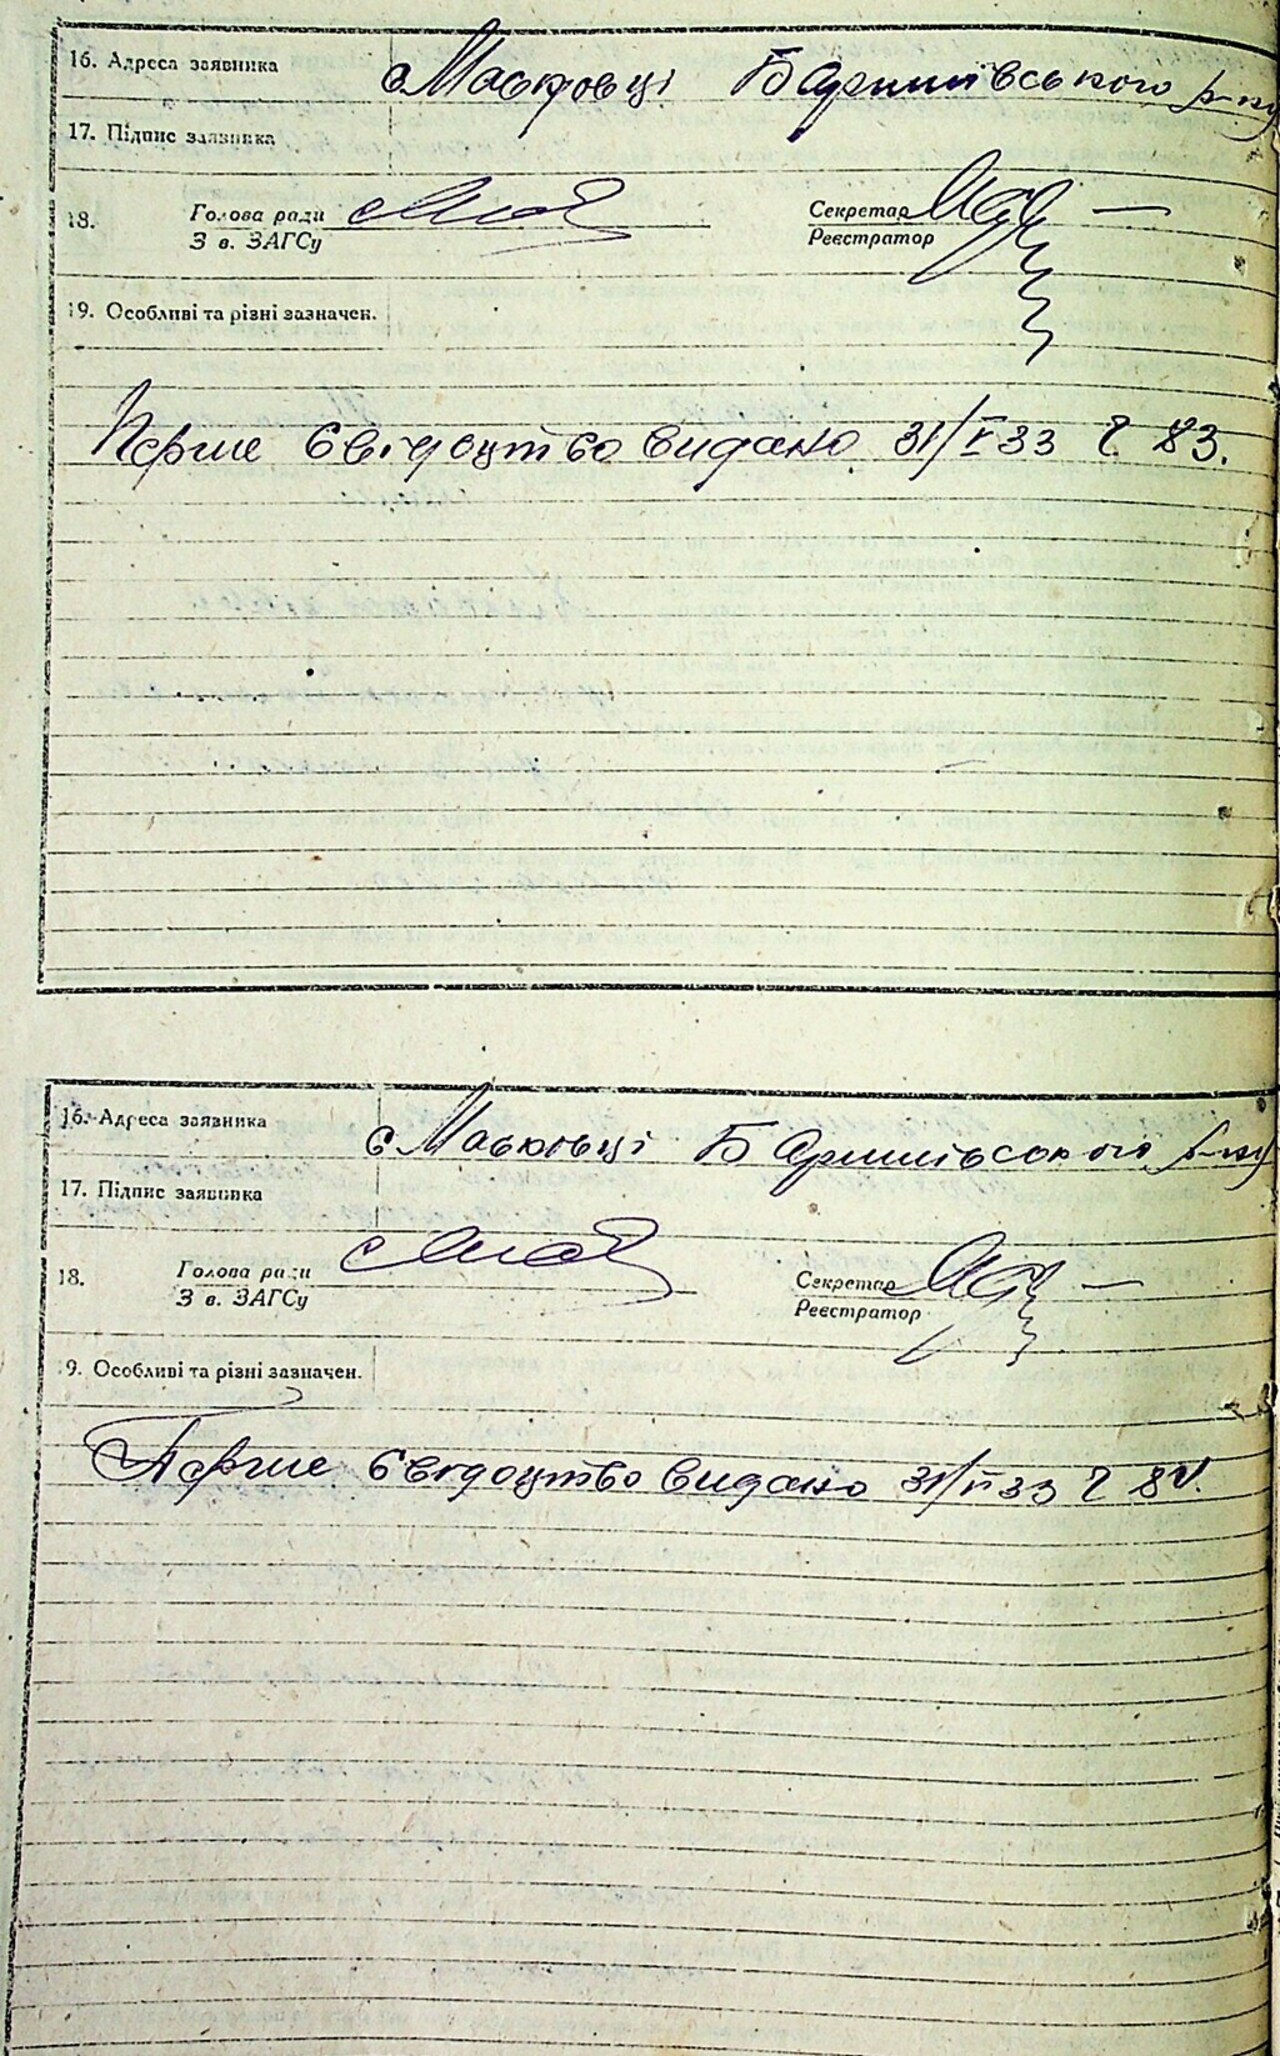 16. Адреса заявника с Масковці Баришівського р-ну
17. Підпис заявника
18. Голова ради Секретар
З в. ЗАГСу Реєстратор
19. Особливі та різні зазначен.
Перше свідоцтво видано 31/V 33 р 83.
16. Адреса заявника с Масковці Баришівського р-ну
17. Підпис заявника
18. Голова ради Секретар
З в. ЗАГСу Реєстратор
9. Особливі та різні зазначен.
Перше свідоцтво видано 31/V 33 р